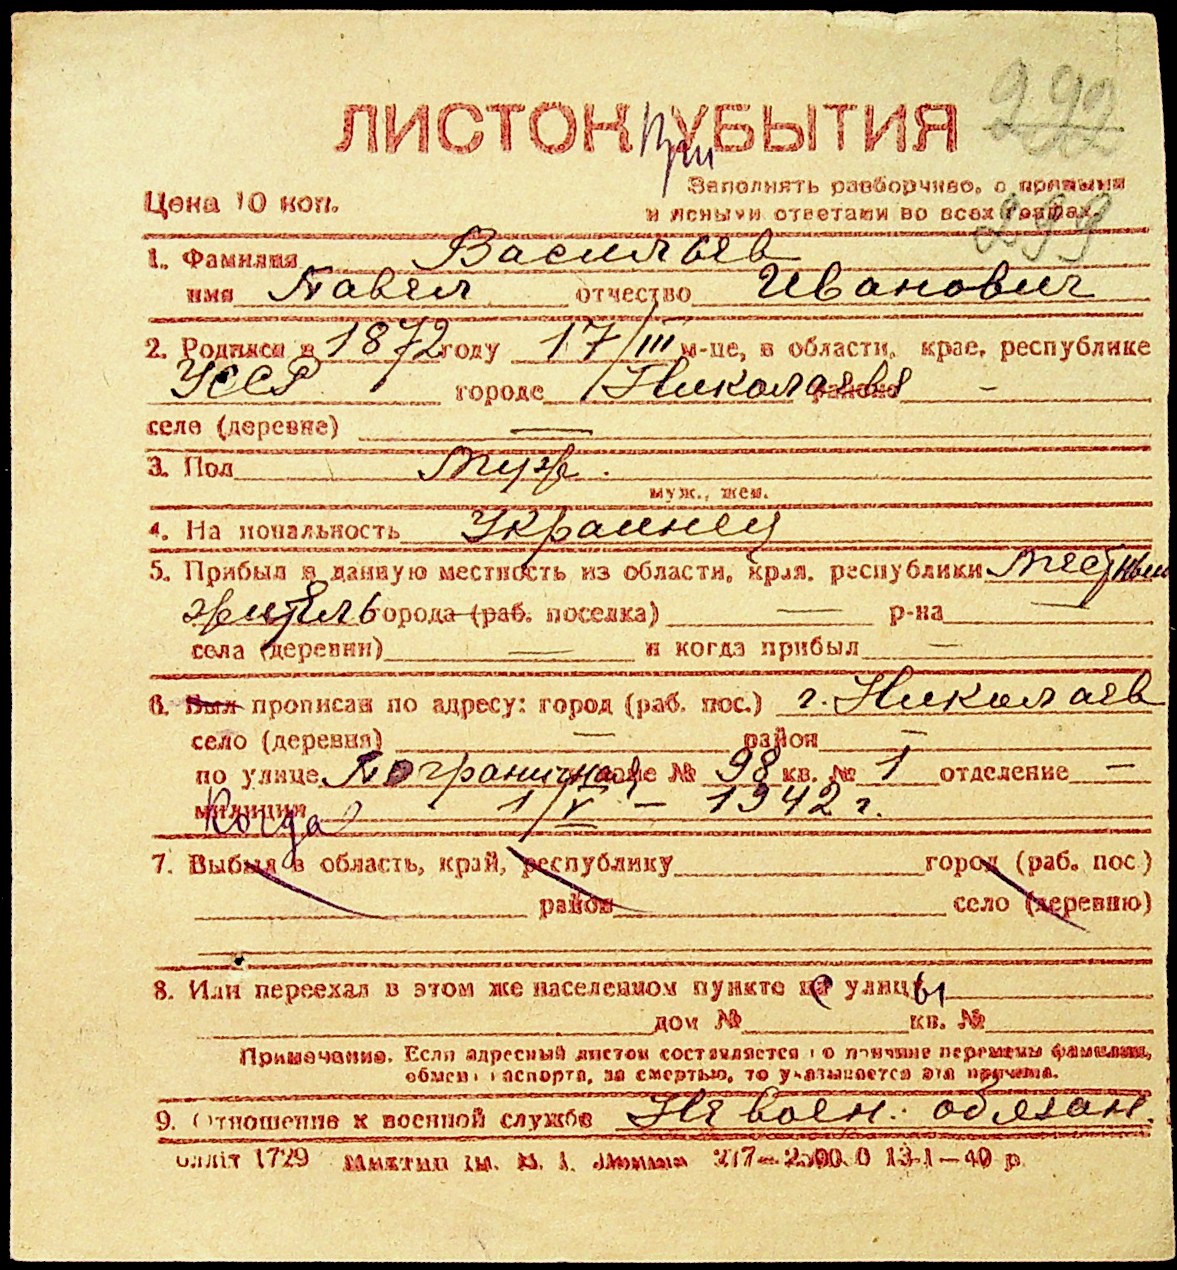 292
ЛИСТОК При УБЫТИЯ
Заполнять разборчиво, с прямыми
Цена 10 коп.
и ясными ответами во всех графах
299
1. Фамилия Васильев
имя Павел отчество Иванович
2. Родился в 1872 году 17/III м-це, в области, крае, республике
УССР городе Николаеве районе —
село (деревне) —
3. Пол муж.
муж., жен.
4. На иональность Украинец
5. Прибыл в данную местность из области, края, республики Местный
житель города (раб. поселка) — р-на —
села (деревни) — и когда прибыл —
6. Был прописан по адресу: город (раб. пос.) г. Николаев
село (деревня) — район —
по улице Пограничная доме № 98 кв. № 1 отделение —
милиции Когда 1/V – 1942 г.
7. Выбыл в область, край, республику город (раб. пос.)
район село (деревню)
8. Или переехал в этом же населенном пункте с улицы
дом № кв. №
Примечание. Если адресный листок составляется по причине перемены фамилии,
обмена паспорта, за смертью, то указывается эта причина.
9. Отношение к военной службе Не воен. обязан.
олліт 1729 Миктип Ім. В. І. Леніна 277–2500 0 13-1–40 р